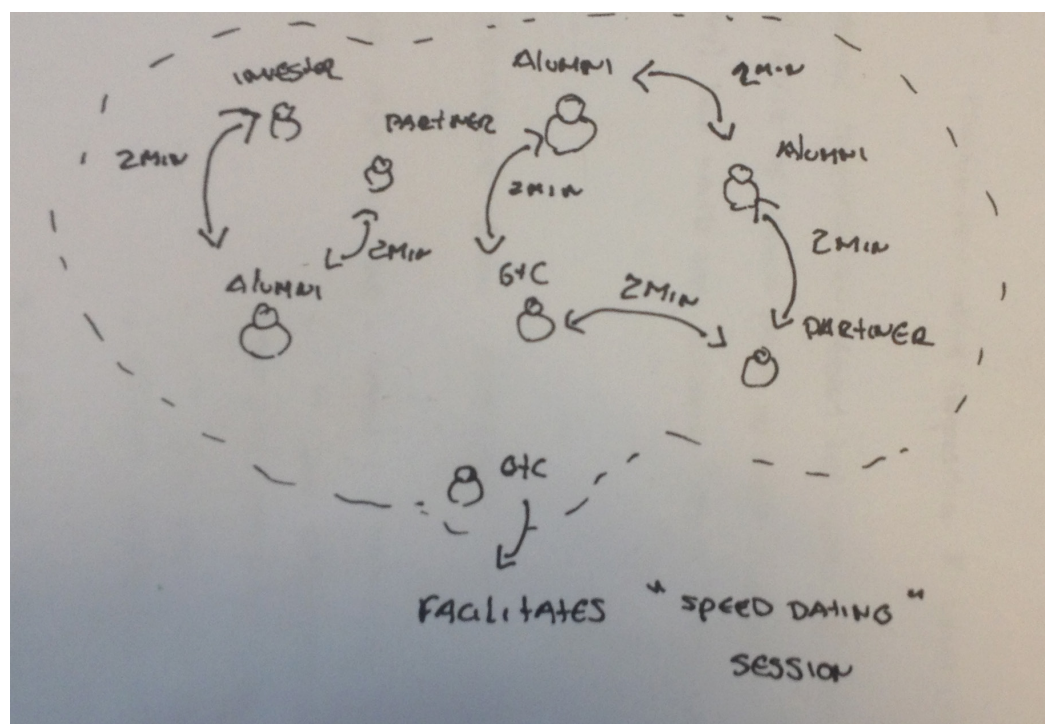 INVESTOR
ALUMNI
2MIN
PARTNER
ALUMNI
2MIN
2MIN
2MIN
2MIN
ALUMNI
G+C
2MIN
PARTNER
G+C
FACILITATES "SPEED DATING"
SESSION